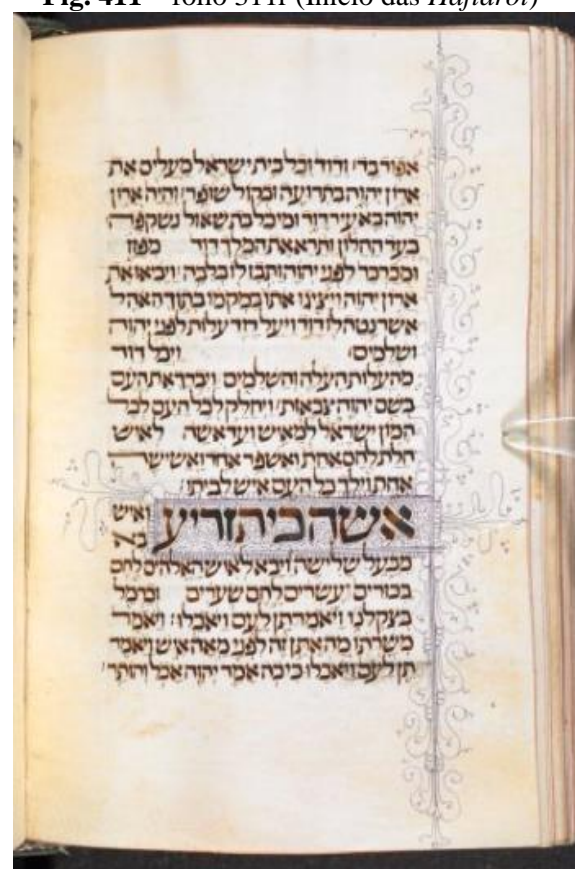 Fig. 411 – fólio 311r (Início das Haftarot)
אפוד בד׃ ודוד וכל בית ישראל מעלים את
ארון יהוה בתרועה ובקול שופר׃ והיה ארון
יהוה בא עיר דוד ומיכל בת שאול נשקפה
בעד החלון ותרא את המלך דוד מפזז
ומכרכר לפני יהוה ותבז לו בלבה׃ ויבאו את
ארון יהוה ויציגו אתו במקמו בתוך האהל
אשר נטה לו דוד ויעל דוד עלות לפני יהוה
ושלמים׃ ויכל דוד
מהעלות העלה והשלמים ויברך את העם
בשם יהוה צבאות׃ ויחלק לכל העם לכל
המון ישראל למאיש ועד אשה לאיש
חלת לחם אחת ואשפר אחד ואשישה
אחת וילך כל העם איש לביתו׃
אשה כי תזריע ואיש
בא
מבעל שלישה ויבא לאיש האלהים לחם
בכורים עשרים לחם שערים וכרמל
בצקלנו ויאמר תן לעם ויאכלו׃ ויאמר
משרתו מה אתן זה לפני מאה איש ויאמר
תן לעם ויאכלו כי כה אמר יהוה אכל והותר׃